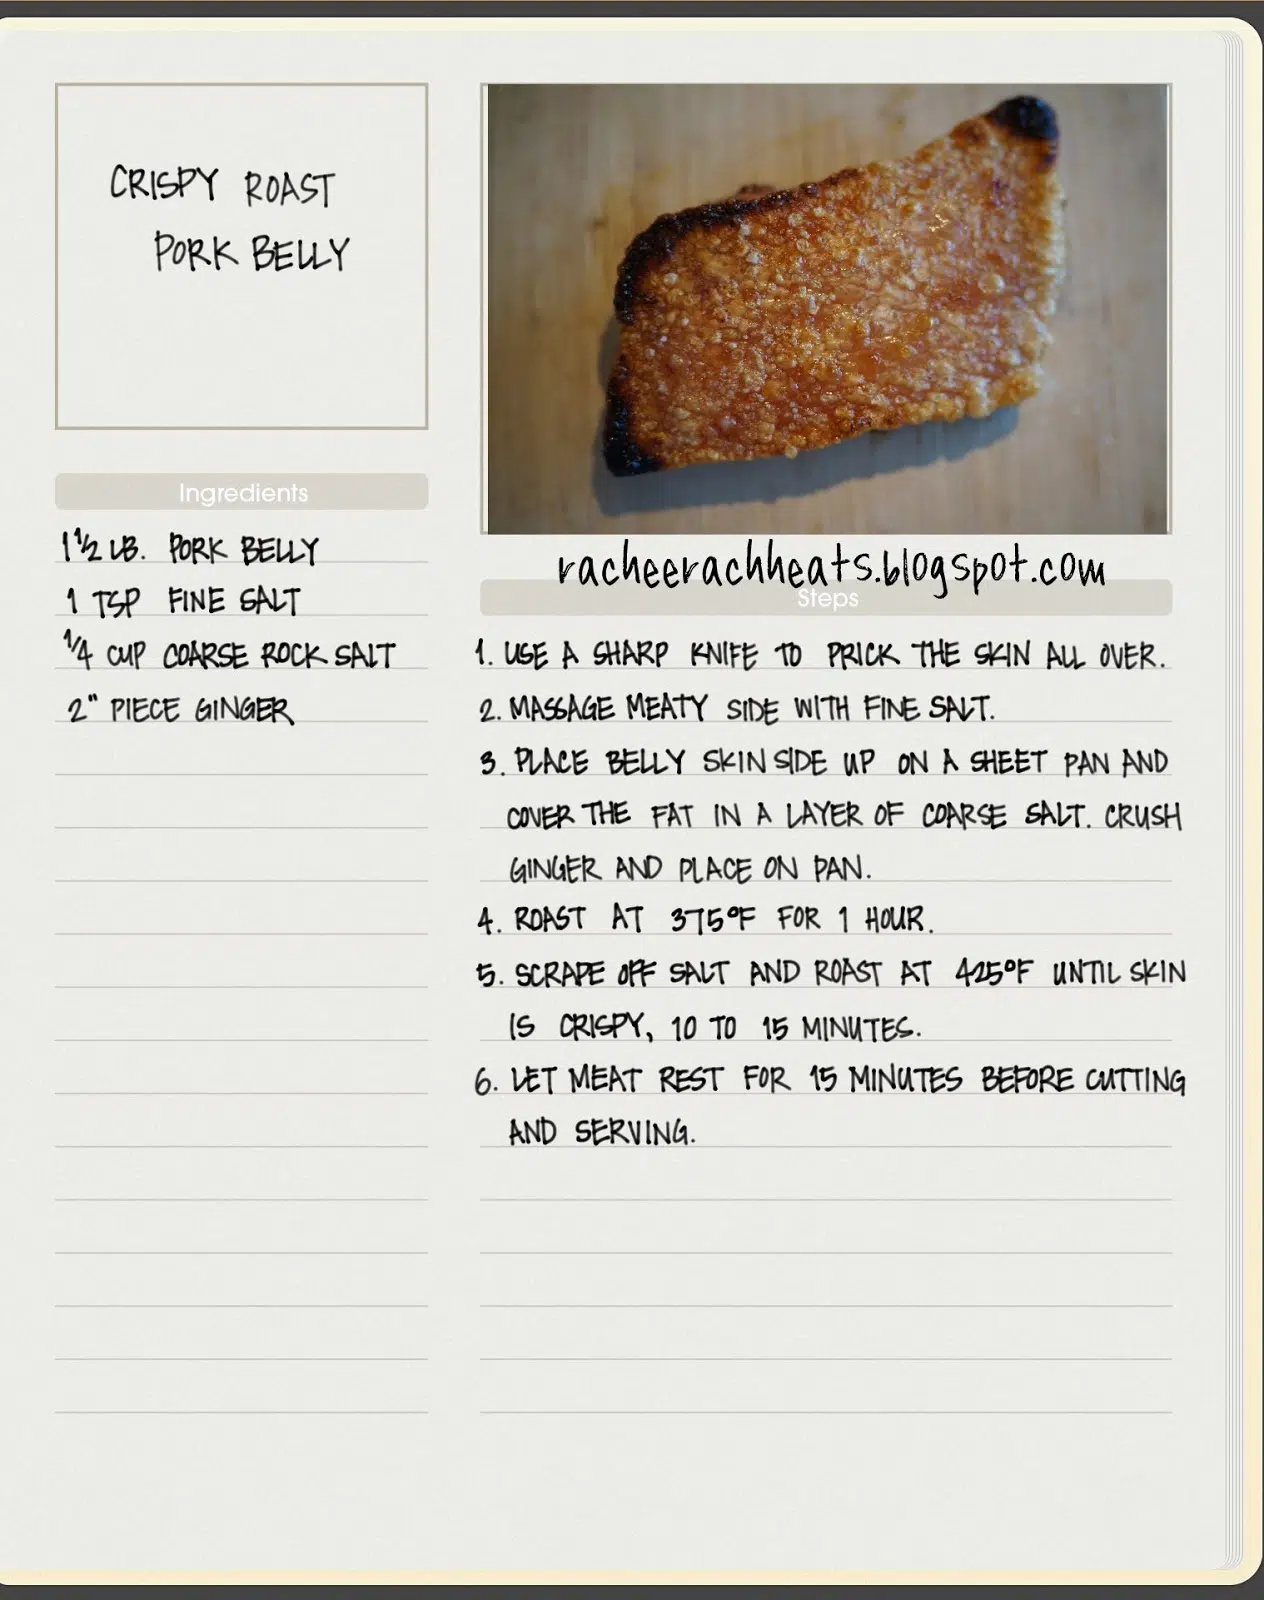 CRISPY ROAST
PORK BELLY
Ingredients
1 1/2 LB. PORK BELLY
1 TSP FINE SALT
1/4 CUP COARSE ROCK SALT
2" PIECE GINGER
racheerachheats.blogspot.com
Steps
1. USE A SHARP KNIFE TO PRICK THE SKIN ALL OVER.
2. MASSAGE MEATY SIDE WITH FINE SALT.
3. PLACE BELLY SKIN SIDE UP ON A SHEET PAN AND
COVER THE FAT IN A LAYER OF COARSE SALT. CRUSH
GINGER AND PLACE ON PAN.
4. ROAST AT 375°F FOR 1 HOUR.
5. SCRAPE OFF SALT AND ROAST AT 425°F UNTIL SKIN
IS CRISPY, 10 TO 15 MINUTES.
6. LET MEAT REST FOR 15 MINUTES BEFORE CUTTING
AND SERVING.